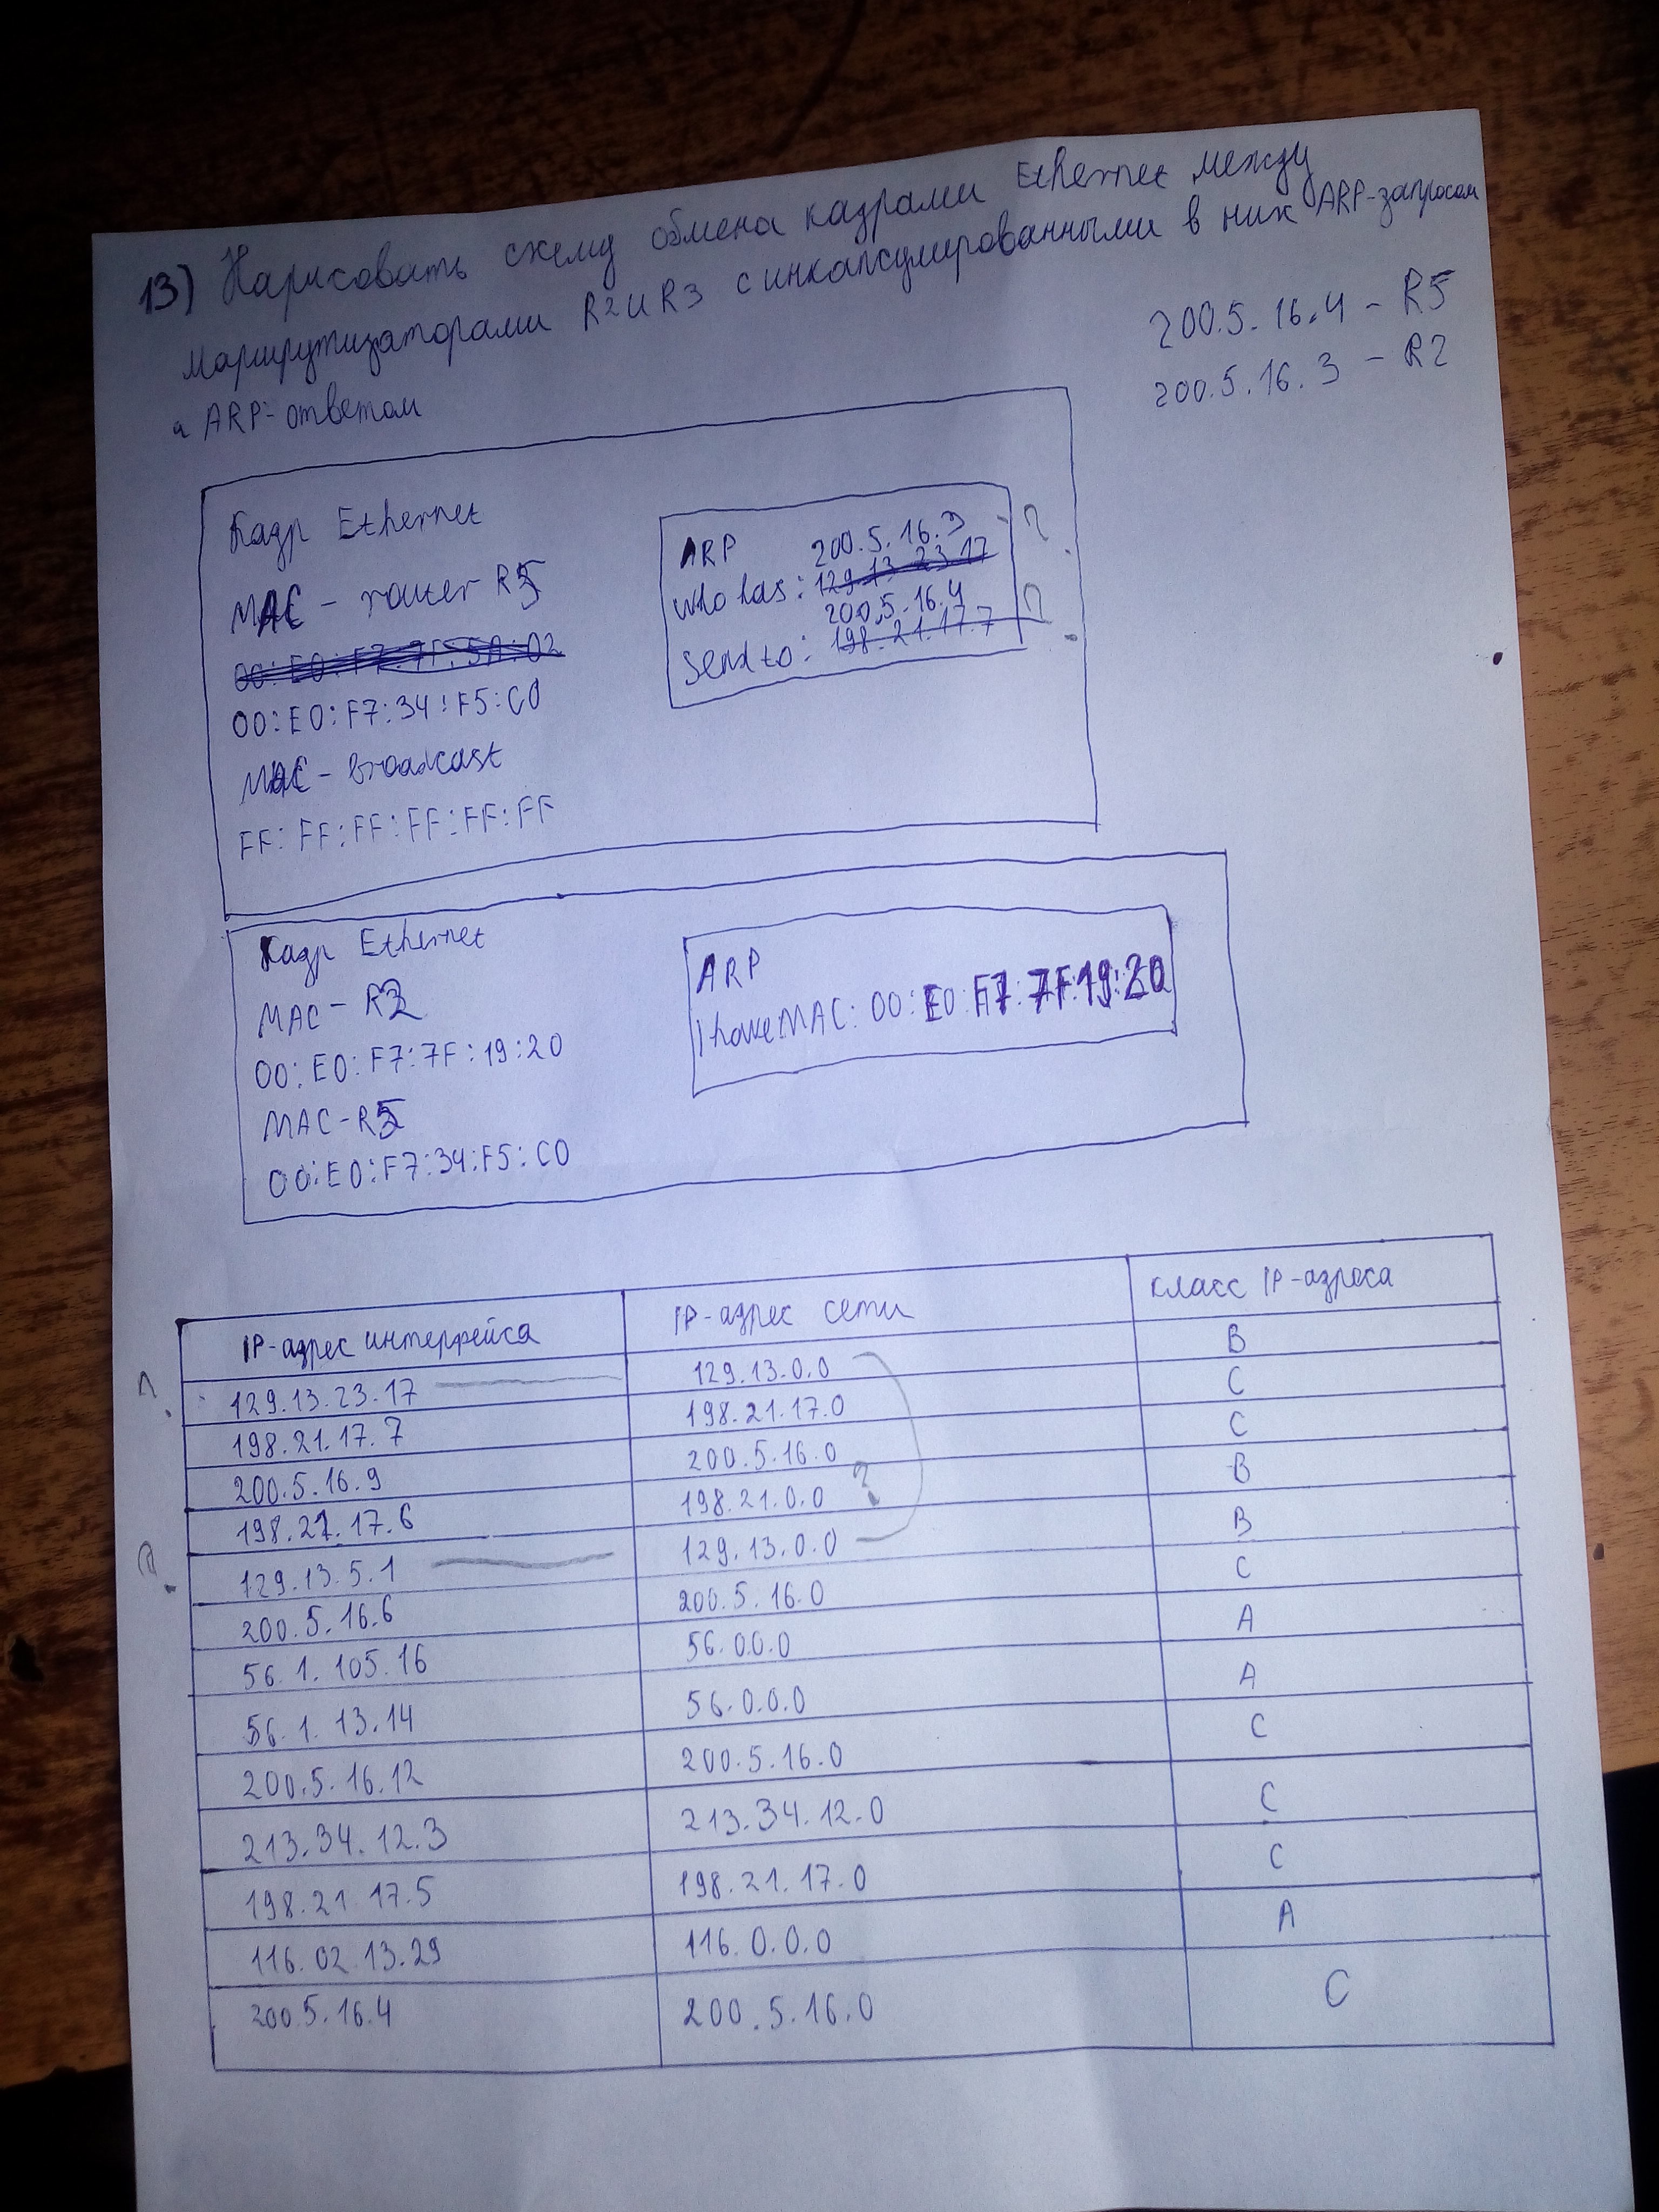 13) Нарисовать схему обмена кадрами Ethernet между
маршрутизаторами R2 и R3 с инкапсулированными в них ARP-запросом
и ARP-ответом
200.5.16.4 - R5
200.5.16.3 - R2
Кадр Ethernet
MAC - router R5
00:E0:F7:7F:5A:02
00:E0:F7:34:F5:C0
MAC - broadcast
FF:FF:FF:FF:FF:FF
ARP
200.5.16.3 - ?
who has: 129.13.23.17
200.5.16.4 ?
send to: 198.21.17.7
Кадр Ethernet
MAC - R2
00:E0:F7:7F:19:20
MAC - R5
00:E0:F7:34:F5:C0
ARP
I have MAC: 00:E0:F7:7F:19:20
IP-адрес интерфейса IP-адрес сети класс IP-адреса
? 129.13.23.17 129.13.0.0 B
198.21.17.7 198.21.17.0 C
200.5.16.9 200.5.16.0 C
198.21.17.6 198.21.0.0 ? B
? 129.13.5.1 129.13.0.0 B
200.5.16.6 200.5.16.0 C
56.1.105.16 56.0.0.0 A
56.1.13.14 56.0.0.0 A
200.5.16.12 200.5.16.0 C
213.34.12.3 213.34.12.0 C
198.21.17.5 198.21.17.0 C
116.02.13.29 116.0.0.0 A
200.5.16.4 200.5.16.0 C